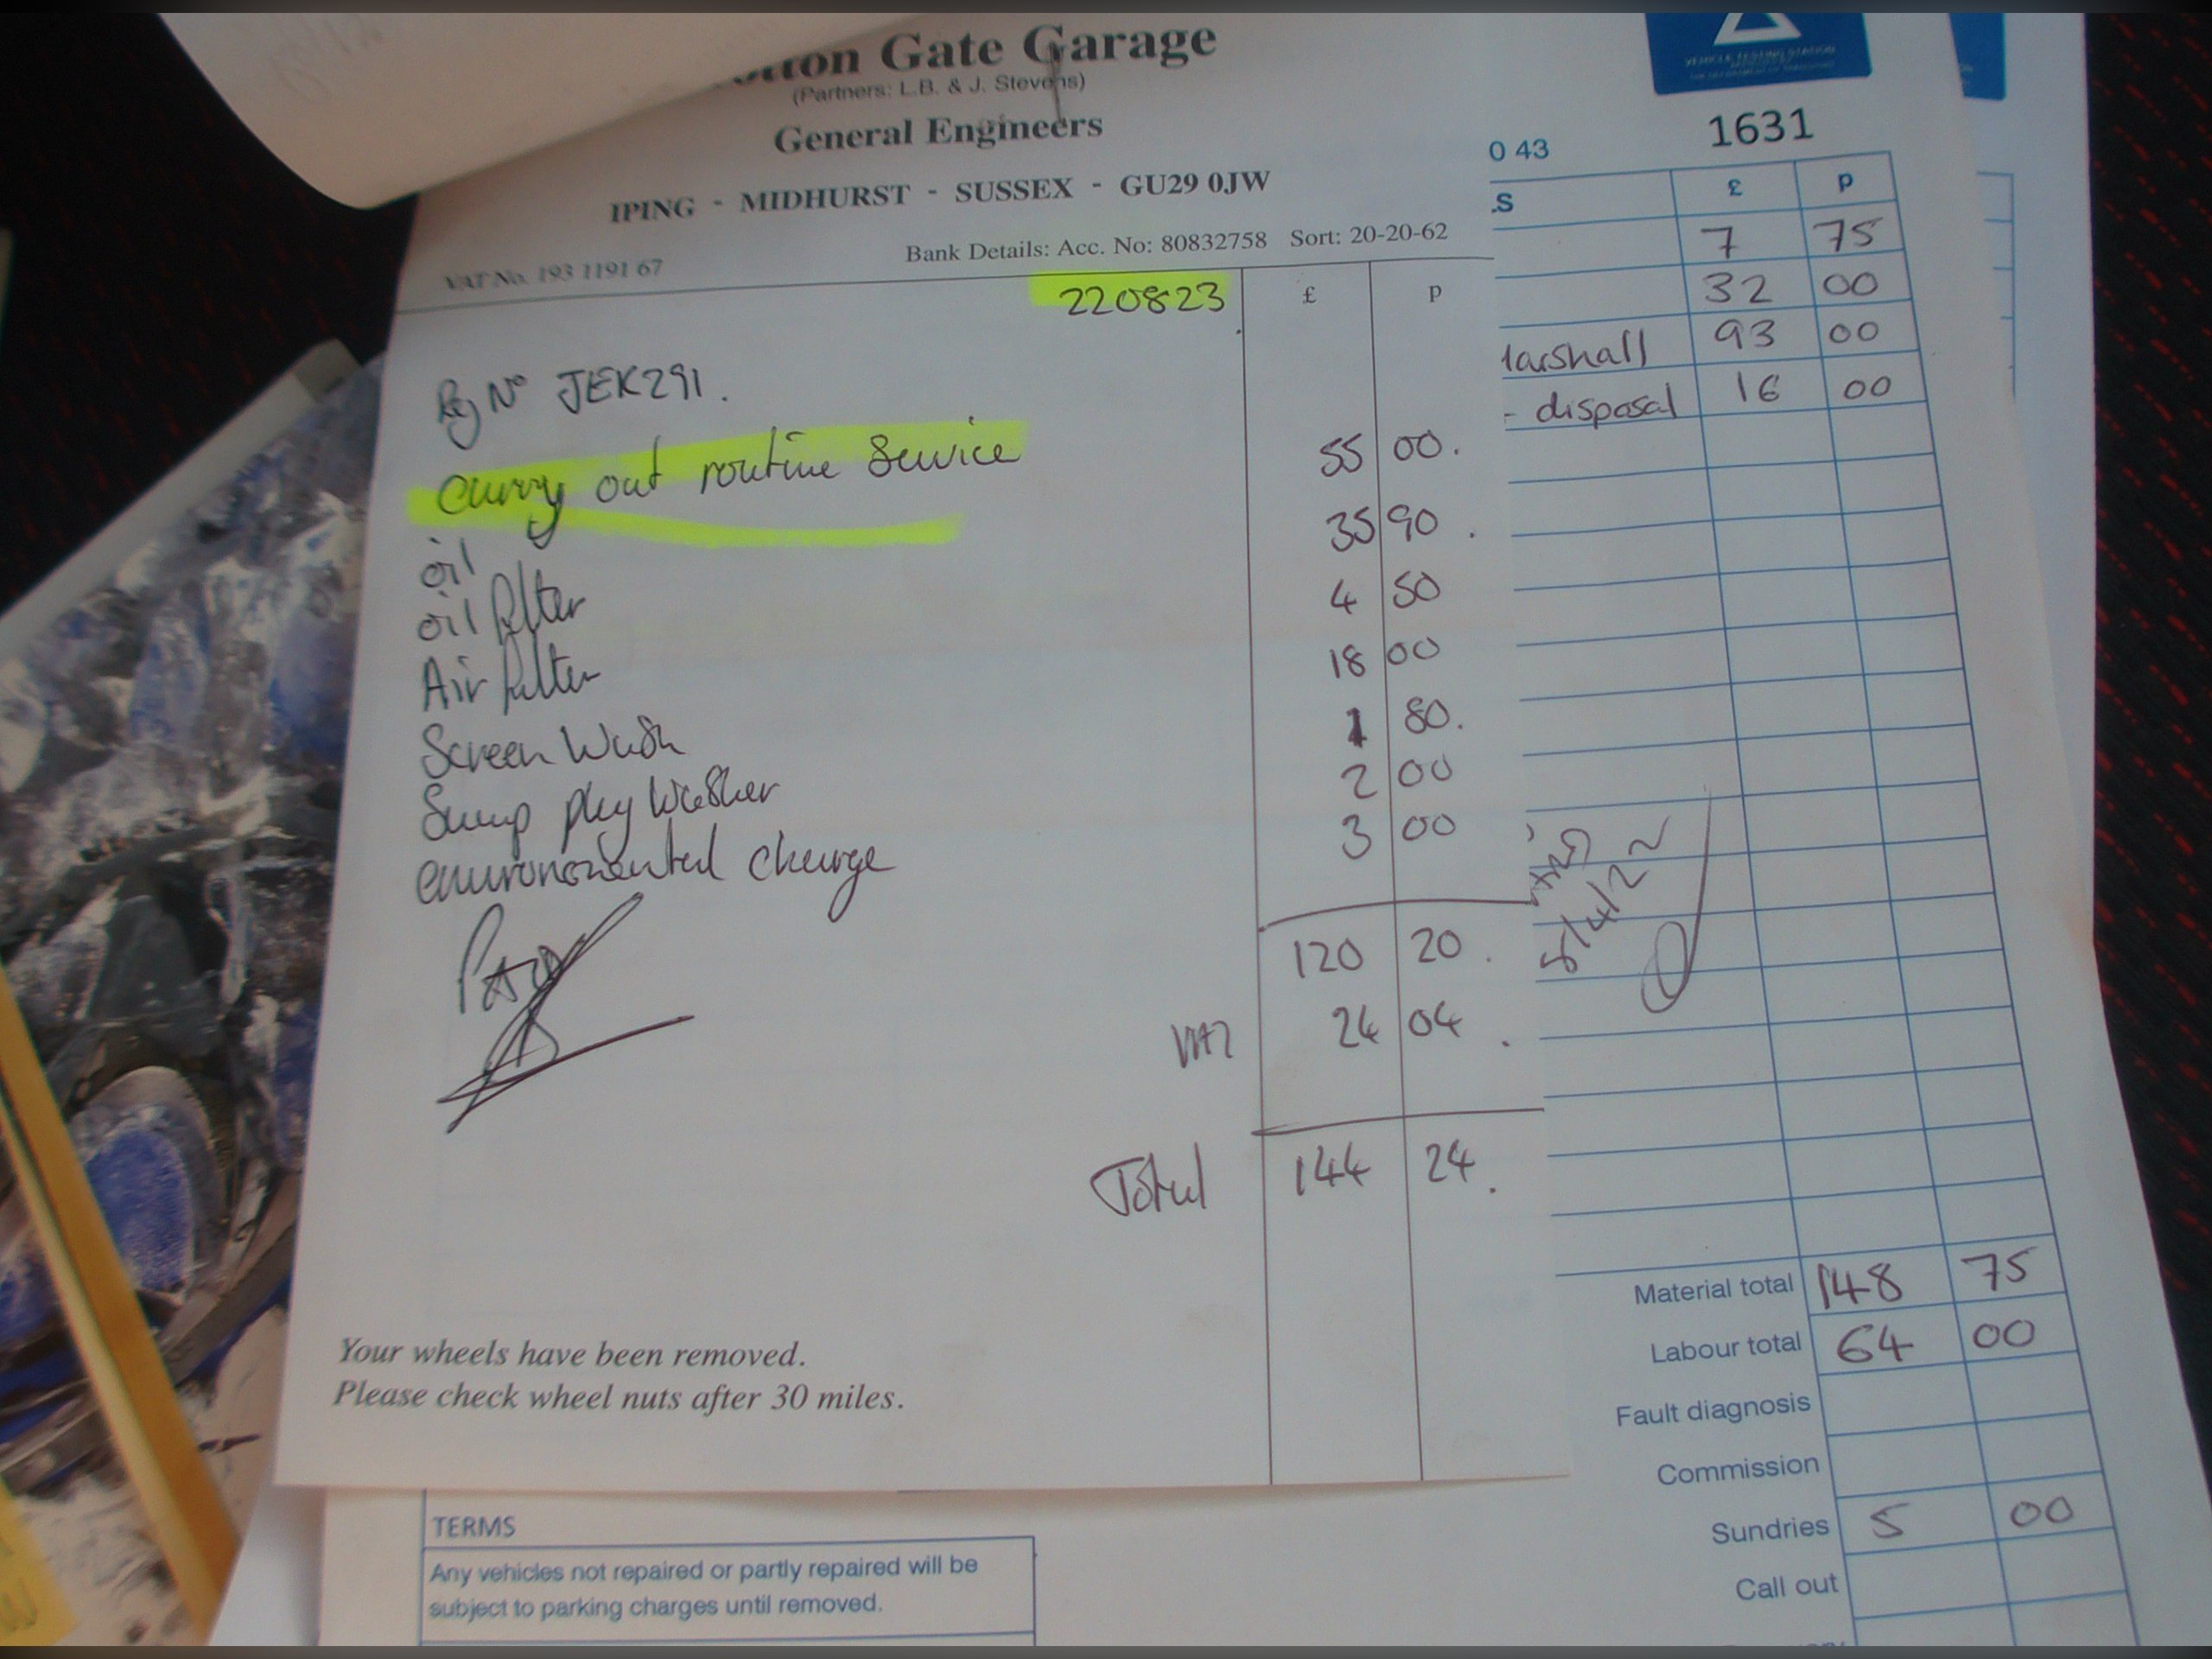 Gate Garage
(Partners: L.B. & J. Stevens)
General Engineers
IPING - MIDHURST - SUSSEX - GU29 0JW
Bank Details: Acc. No: 80832758 Sort: 20-20-62
VAT No. 193 1191 67
220823 £ p
Reg No JEK291.
Carry out routine Service 55 00.
oil 35 90.
oil filter 4 50
Air filter 18 00
Screen Wash 1 80.
Sump plug Washer 2 00
environmental charge 3 00
120 20.
VAT 24 04.
Total 144 24.
Your wheels have been removed.
Please check wheel nuts after 30 miles.
VEHICLE TESTING STATION
0 43 1631
£ p
7 75
32 00
93 00
- disposal 16 00
Material total 148 75
Labour total 64 00
Fault diagnosis
Commission
Sundries 5 00
Call out
TERMS
Any vehicles not repaired or partly repaired will be
subject to parking charges until removed.